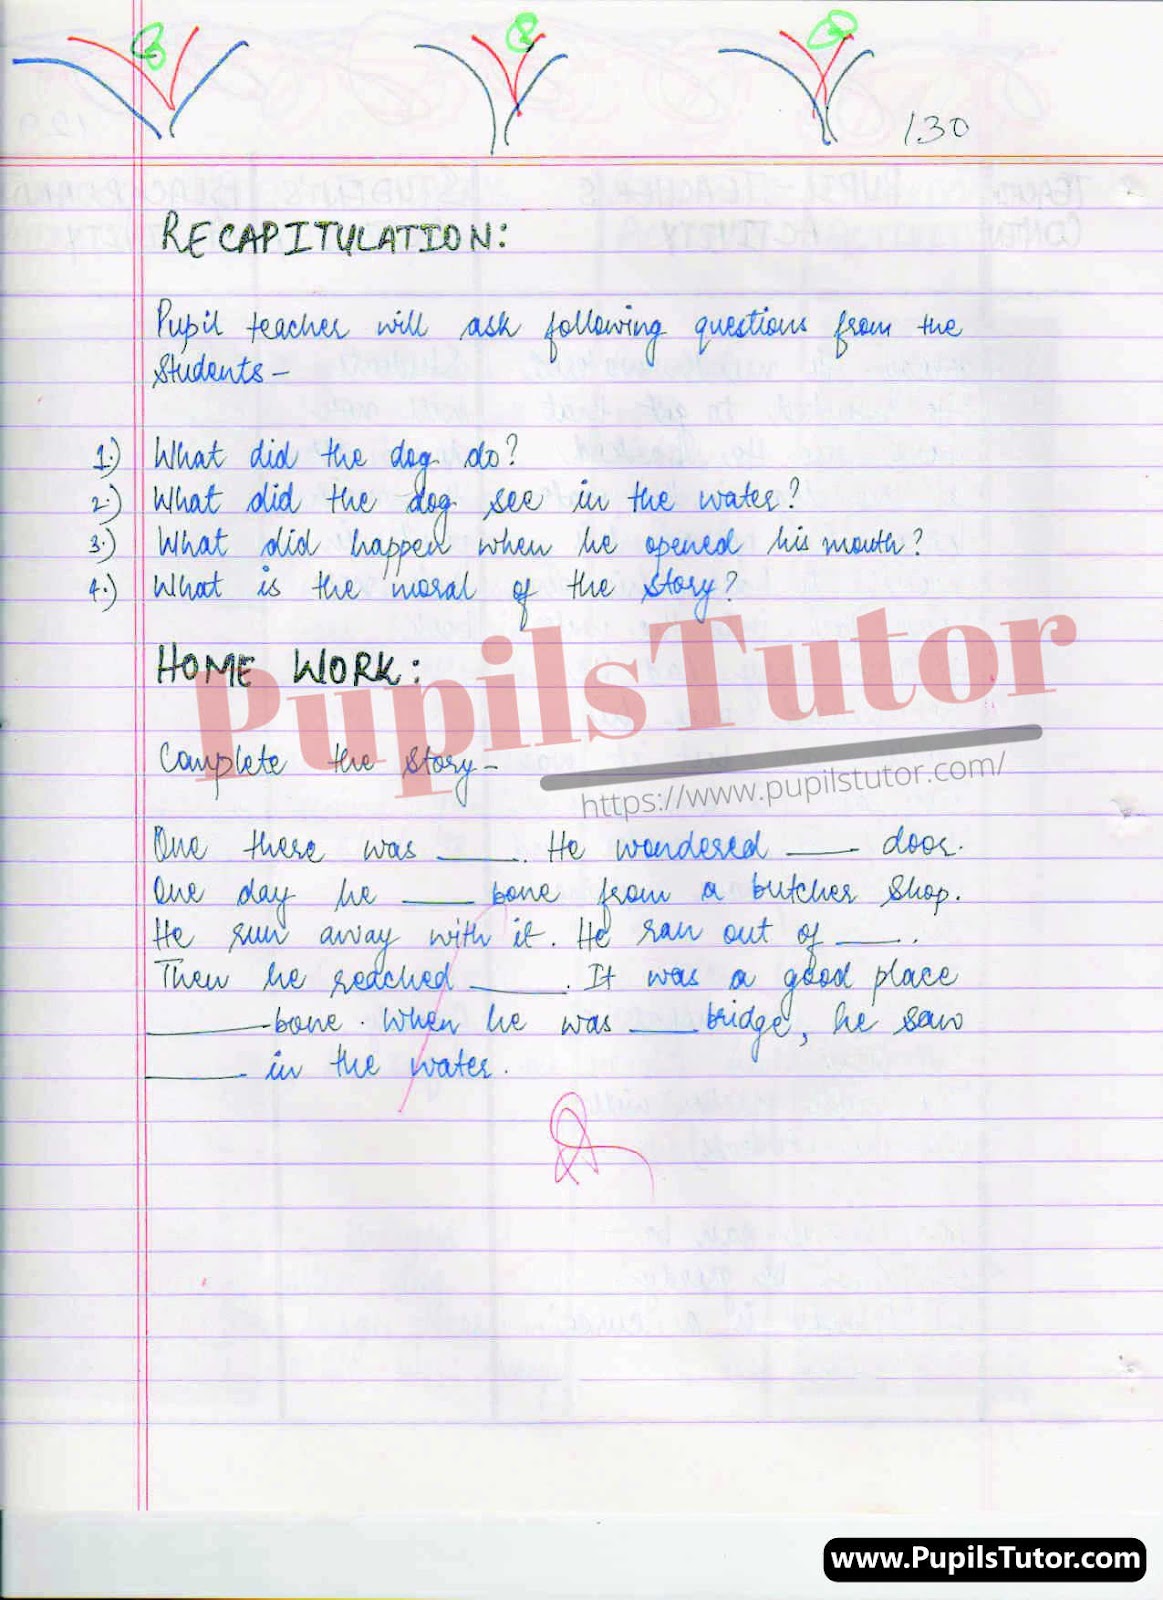 130
RECAPITULATION:
Pupil teacher will ask following questions from the
Students-
1.) What did the dog do?
2.) What did the dog see in the water?
3.) What did happen when he opened his mouth?
4.) What is the moral of the story?
PupilsTutor
HOME WORK:
Complete the story-
https://www.pupilstutor.com/
One there was ____. He wondered ____ door.
One day he ____ bone from a butcher shop.
He run away with it. He ran out of ____.
Then he reached ____. It was a good place
____ bone. When he was ____ bridge, he saw
____ in the water.
www.PupilsTutor.com